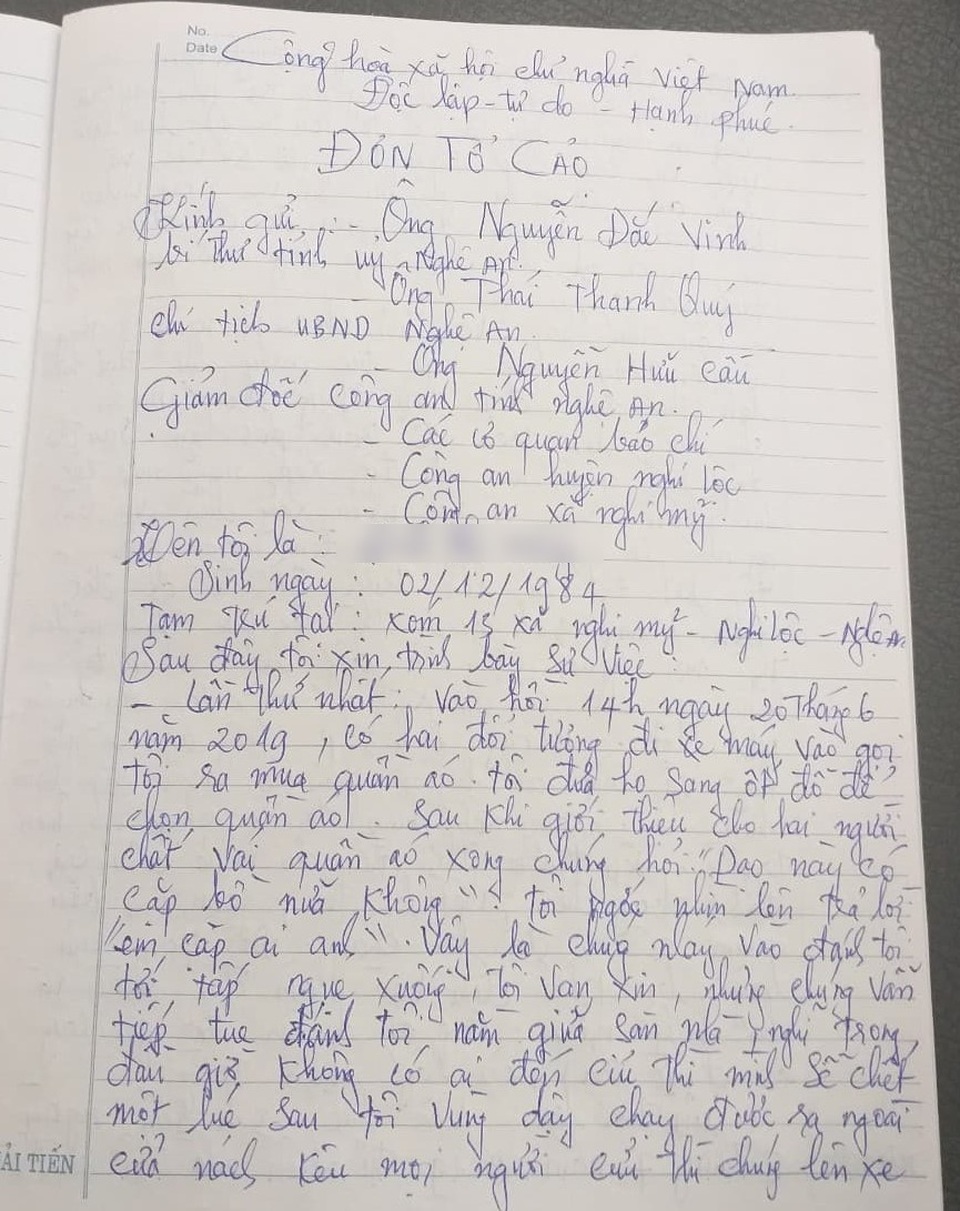 No.
Date
Cộng hoà xã hội chủ nghã Việt Nam
Độc lập - tự do - Hạnh phúc.
ĐÓN TỐ CẢO
Kính gửi : - Ông Nguyễn Đắc Vinh
bí thư tỉnh uỷ Nghệ An.
- Ông Thái Thanh Quý
chủ tịch UBND Nghệ An.
- Ông Nguyễn Hữu Cầu
Giám đốc công an tỉnh nghệ An.
- Các cơ quan báo chí
- Công an huyện nghi lộc
- Công an xã nghi mỹ.
Tên tôi là :
Sinh ngày : 02/12/1984
Tạm trú tại : xóm 13 xã nghi mỹ - Nghi Lộc - Nghệ An
Sau đây tôi xin trình bày sự việc :
- Lần thứ nhất : vào hồi 14h ngày 20 Tháng 6
năm 2019, có hai đối tượng đi xe máy vào gọi
tôi ra mua quần áo. tôi đưa họ sang ốt đồ để
chọn quần áo. Sau khi giới thiệu cho hai người
chất vải quần áo xong chúng hỏi: "Dạo này có
cặp bồ nữa không"? Tôi ngước nhìn lên trả lời
"em cặp ai anh". Vậy là chúng nhảy vào đánh tôi
tới tấp ngục xuống, tôi van xin, nhưng chúng vẫn
tiếp tục đánh tôi nằm giữa sàn nhà, nghĩ trong
đầu giờ không có ai đến cứu thì mình sẽ chết
một lúc sau tôi vùng dậy chạy được ra ngoài
cửa nách kêu mọi người cứu thì chúng lên xe
ẢI TIẾN